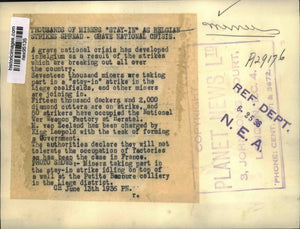 THOUSANDS OF MINERS "STAY-IN" AS BELGIAN
STRIKES SPREAD - GRAVE NATIONAL CRISIS.
A grave national crisis has developed
in Belgium as a result of the strikes
which are breaking out all over
the country.
Seventeen thousand miners are taking
part in a stay-in strike in the
Liege coalfields, and other miners
are joining in.
Fifteen thousand dockers and 2,000
diamond cutters are on strike, and
strikers have occupied the National
War Weapon Factory at Herstal.
M. van has been charged by
King Leopold with the task of forming
a Government.
The authorities declare they will not
permit the occupation of factories
as has been the case in France.
PHOTO SHOWS:- Miners taking part in
the stay-in strike idling on top of
a wall at the Petite Bacnure colliery
in the Liege district.
June 15th 1936 PN.
historicimages.com
Miners
A29176
PLANET NEWS LTD
3, JOHNSON'S COURT,
LONDON, E.C. 4.
'PHONE: CENTRAL
REF. DEPT.
N. E. A.